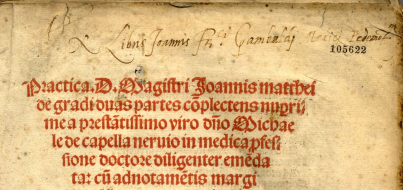 Ex Libris Joannis
105622
Practica. D. Magistri Joannis matthei
de gradi duas partes cõplectens nuperri
me a prestãtissimo viro dño Michae
le de capella neruio in medica pfessi
sione doctore diligenter emẽda
ta: cũ adnotamẽtis margi